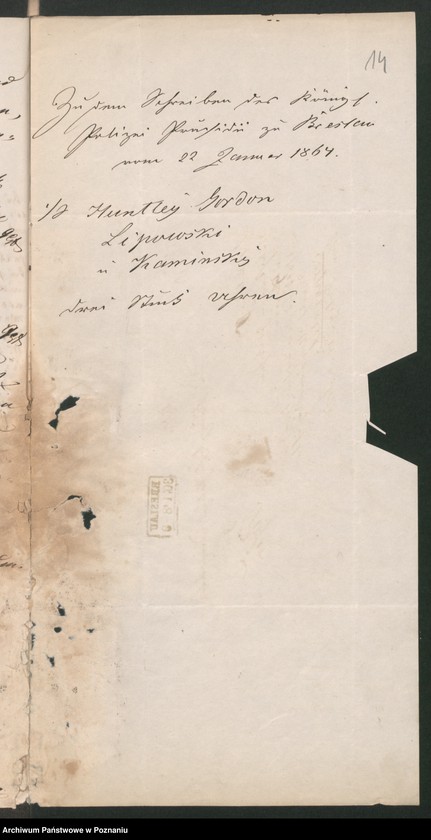 14
Zu dem Schreiben des Königl.
Polizei Präsidii zu Breslau
vom 22 Januar 1864.
i/S Huntley Gordon
Lipowski
u Kaminsky
drei Stück Uhren.
BRESLAU
Archiwum Państwowe w Poznaniu